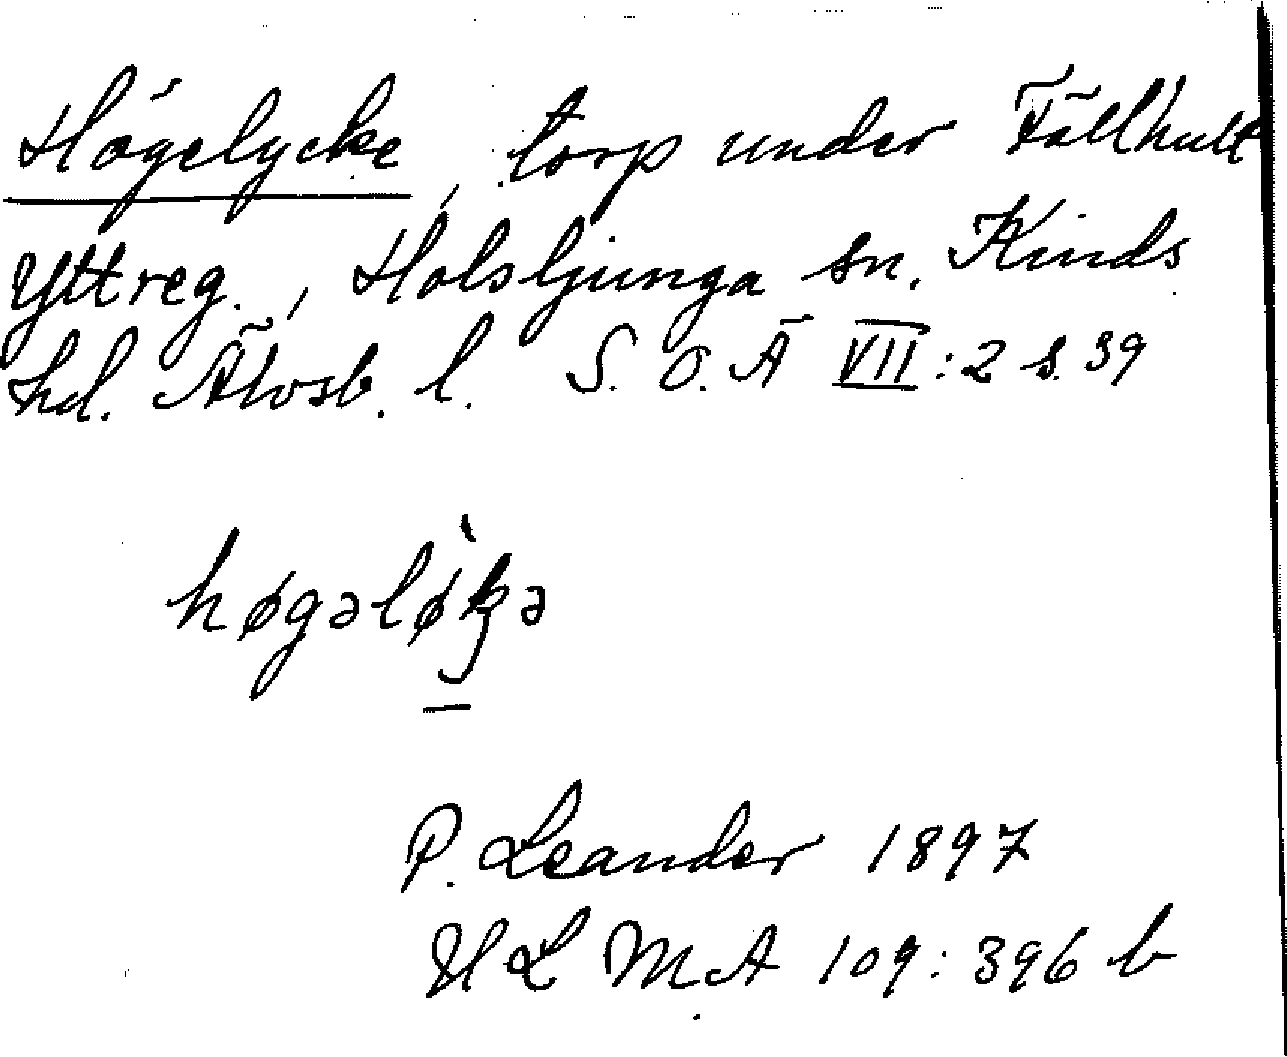 Högelycke, torp under Fällhult
Yttreg., Holsljunga sn. Kinds
hd. Älvsb. l. S. O. Ä VII:2 s. 39
høgəlø̀kə
P. Leander 1897
ULMA 109:396 b